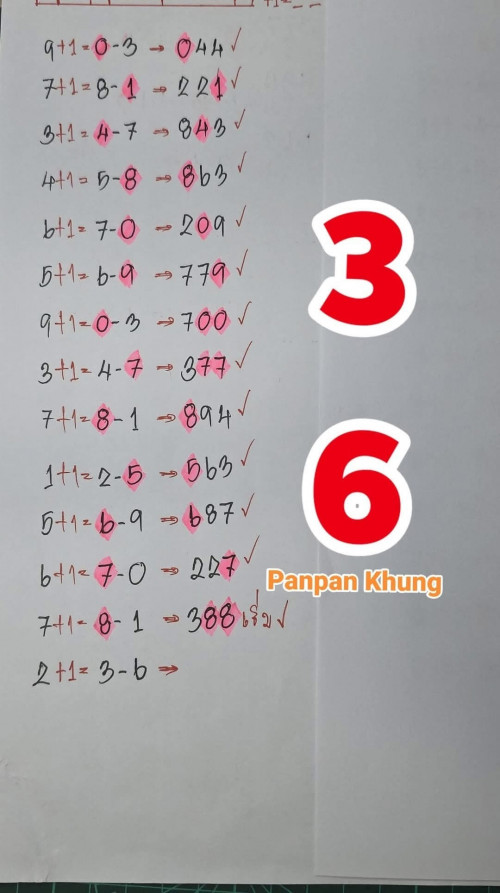 9+1=0-3 → 044 ✓
7+1=8-1 ⇒ 221 ✓
3+1=4-7 ⇒ 843 ✓
4+1=5-8 ⇒ 863 ✓
6+1=7-0 ⇒ 209 ✓
5+1=6-9 ⇒ 779 ✓
9+1=0-3 ⇒ 700 ✓
3+1=4-7 ⇒ 377 ✓
7+1=8-1 ⇒ 894 ✓
1+1=2-5 ⇒ 563 ✓
5+1=6-9 ⇒ 687 ✓
6+1=7-0 ⇒ 227 ✓
7+1=8-1 ⇒ 388 เริ่ม ✓
2+1=3-6 ⇒
3
6
Panpan Khung